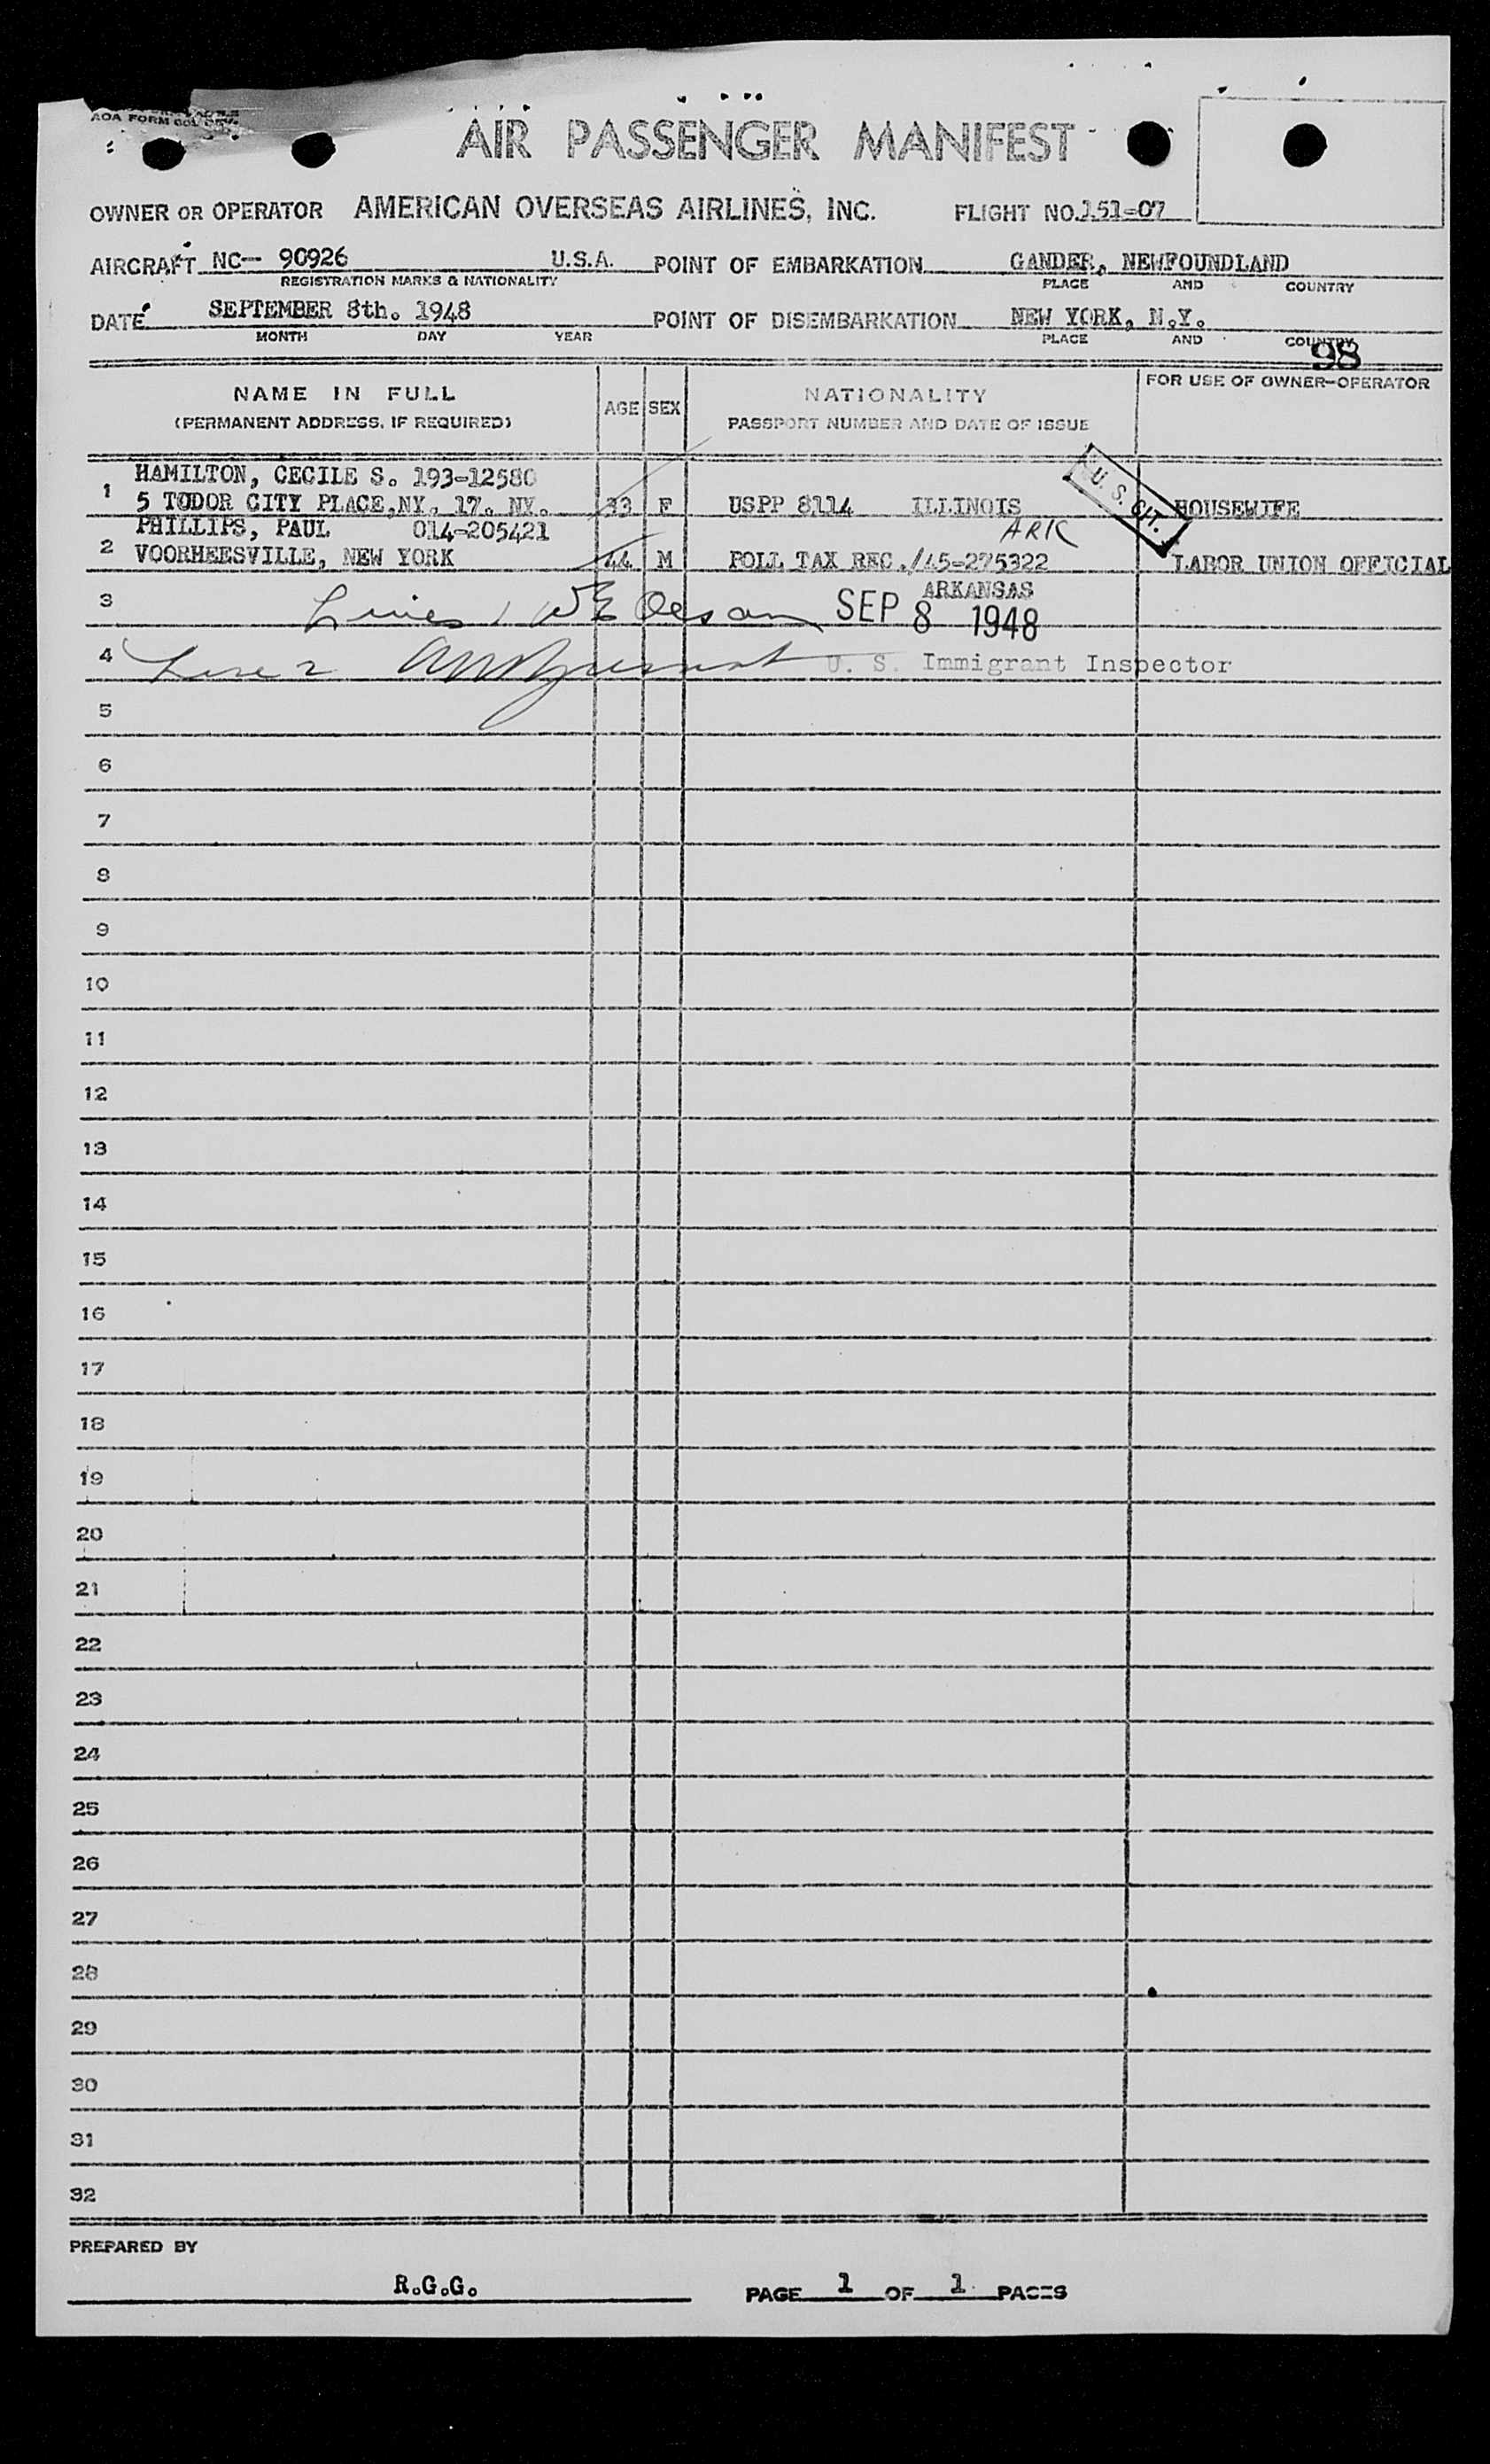 AOA FORM
AIR PASSENGER MANIFEST
OWNER OR OPERATOR AMERICAN OVERSEAS AIRLINES, INC. FLIGHT NO. 151-07
AIRCRAFT NC- 90926 U.S.A. POINT OF EMBARKATION GANDER, NEWFOUNDLAND
REGISTRATION MARKS & NATIONALITY PLACE AND COUNTRY
DATE SEPTEMBER 8th. 1948 POINT OF DISEMBARKATION NEW YORK, N.Y.
MONTH DAY YEAR PLACE AND COUNTRY
98
NAME IN FULL AGE SEX NATIONALITY FOR USE OF OWNER-OPERATOR
(PERMANENT ADDRESS, IF REQUIRED) PASSPORT NUMBER AND DATE OF ISSUE
HAMILTON, CECILE S. 193-12580 U. S. CIT.
1 5 TODOR CITY PLACE,NY. 17. NY. 33 F USPP 8114 ILLINOIS HOUSEWIFE
PHILLIPS, PAUL 014-205421 ARK
2 VOORHEESVILLE, NEW YORK 44 M POLL TAX REC./45-275322 LABOR UNION OFFICIAL
ARKANSAS
3 Lines 1 SEP 8 1948
4 Line 2 U. S. Immigrant Inspector
5
6
7
8
9
10
11
12
13
14
15
16
17
18
19
20
21
22
23
24
25
26
27
28
29
30
31
32
PREPARED BY
R.G.G. PAGE 1 OF 1 PAGES